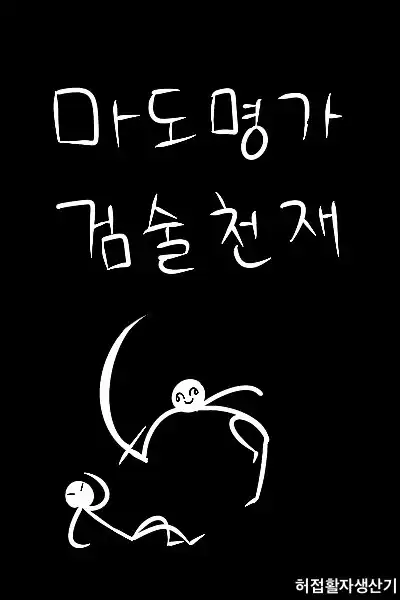 마도명가
검술천재
허접활자생산기